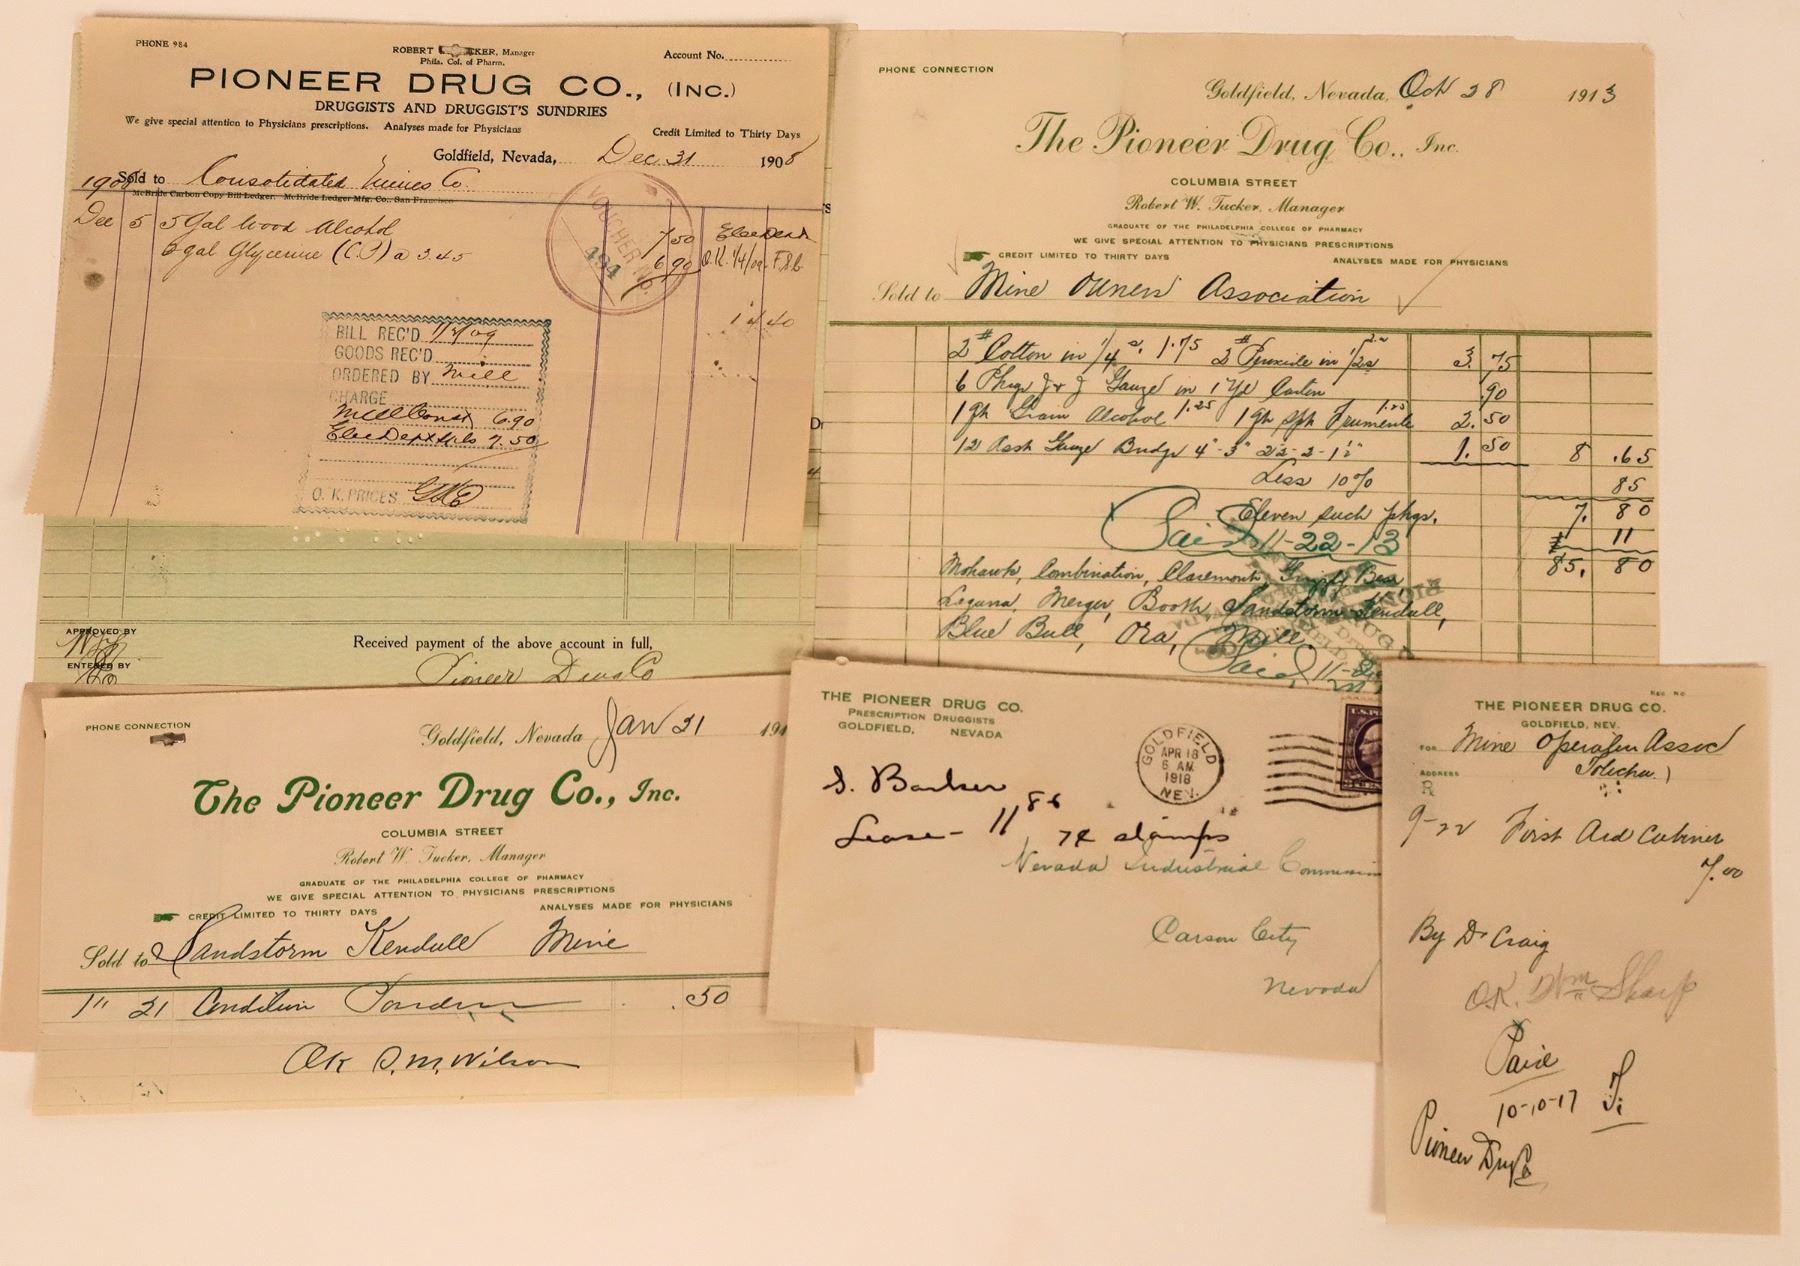 PHONE 984
ROBERT KER, Manager
Phila. Col. of Pharm.
Account No.
PIONEER DRUG CO., (INC.)
DRUGGISTS AND DRUGGIST'S SUNDRIES
We give special attention to Physicians prescriptions. Analyses made for Physicians
Credit Limited to Thirty Days
Goldfield, Nevada, Dec 31 1908
Sold to Consolidated Mines Co.
1908
McBride Carbon Copy Bill Ledger. McBride Ledger Mfg. Co., San Francisco
Dec 5 5 Gal Wood Alcohol 7 50 Elec Dept
2 gal Glycerine (C.P) a 3.45 6 90 O.K. 1/4/09
VOUCHER No.
494
14 40
BILL REC'D 1/2/09
GOODS REC'D
ORDERED BY Mill
CHARGE
Mill Const 6.90
Elec Dept 7.50
O. K. PRICES
APPROVED BY
ENTERED BY
Received payment of the above account in full,
Pioneer Drug Co
PHONE CONNECTION
Goldfield, Nevada, Oct 28 1913
The Pioneer Drug Co., Inc.
COLUMBIA STREET
Robert W. Tucker, Manager
GRADUATE OF THE PHILADELPHIA COLLEGE OF PHARMACY
WE GIVE SPECIAL ATTENTION TO PHYSICIANS PRESCRIPTIONS
CREDIT LIMITED TO THIRTY DAYS
ANALYSES MADE FOR PHYSICIANS
Sold to Mine Owners Association
2# Cotton in 1/4s 1.75 2# Peroxide in 1/2s 3.75
6 Phgs J & J Gauze in 1 Yd Carton .90
1 Qt Grain Alcohol 1.25 1 Qt Spt Frumenti 1.25 2.50
12 Asst Gauze Bndgs 4"-3" 2½-2-1½" 1.50 8.65
Less 10% 85
Eleven such phgs. 7.80
11
Paid 11-22-13
85.80
Mohawk, Combination, Claremont, Grizzly Bear,
Laguna, Merger, Booth, Sandstorm Kendall,
Blue Bull, Ora, Mill.
Paid
PHONE CONNECTION
Goldfield, Nevada Jan 31 191
The Pioneer Drug Co., Inc.
COLUMBIA STREET
Robert W. Tucker, Manager
GRADUATE OF THE PHILADELPHIA COLLEGE OF PHARMACY
WE GIVE SPECIAL ATTENTION TO PHYSICIANS PRESCRIPTIONS
CREDIT LIMITED TO THIRTY DAYS
ANALYSES MADE FOR PHYSICIANS
Sold to Sandstorm Kendall Mine
1" 21 Condition Powders .50
OK S.M. Wilson
THE PIONEER DRUG CO.
PRESCRIPTION DRUGGISTS
GOLDFIELD, NEVADA
GOLDFIELD
APR 18
6 AM
1918
NEV.
S. Barker
Lease- 11 86
7¢ stamps
Nevada Industrial Commission
Carson City
Nevada
REG. NO.
THE PIONEER DRUG CO.
GOLDFIELD, NEV.
FOR Mine Operators Assoc
ADDRESS Tolicha)
R
9-22 First Aid Cabinet
7.00
By Dr Craig
O.K. Wm Sharp
Paid
10-10-17
Pioneer Drug Co